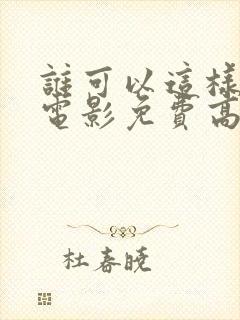 誰可以這樣
電影免費高
杜春曉